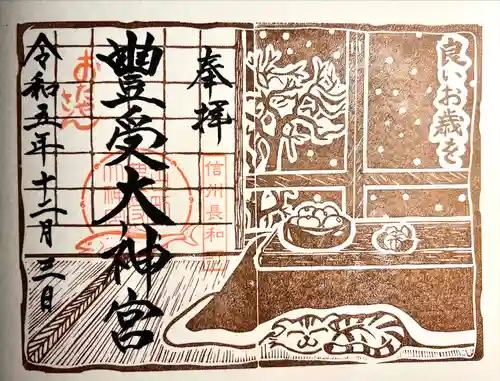 良いお歳を
奉拝
信州長和
豐受大神宮
おたやさん
令和五年十二月三日